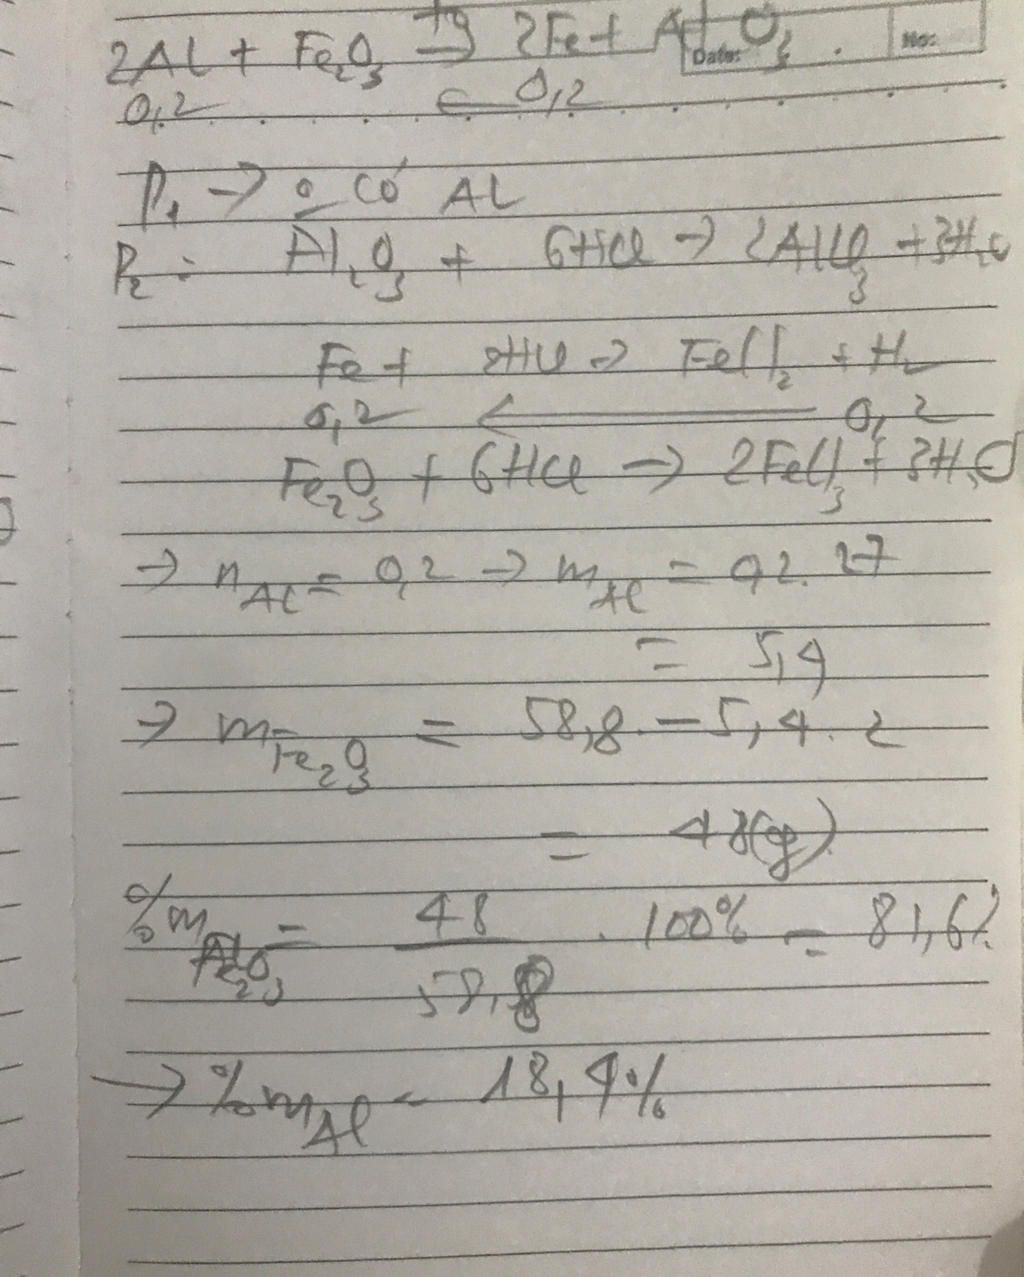 2Al + Fe2O3 →tº 2Fe + Al2O3.
Date: No:
0,2 ← 0,2
P1 → o có Al
P2: Al2O3 + 6HCl → 2AlCl3 + 3H2O
Fe + 2HCl → FeCl2 + H2
0,2 ← 0,2
Fe2O3 + 6HCl → 2FeCl3 + 3H2O
→ nAl = 0,2 → mAl = 0,2.27
= 5,4
→ mFe2O3 = 58,8 - 5,4.2
= 48(g)
%mFe2O3 = 48/58,8 . 100% = 81,6%
→ %mAl = 18,4%